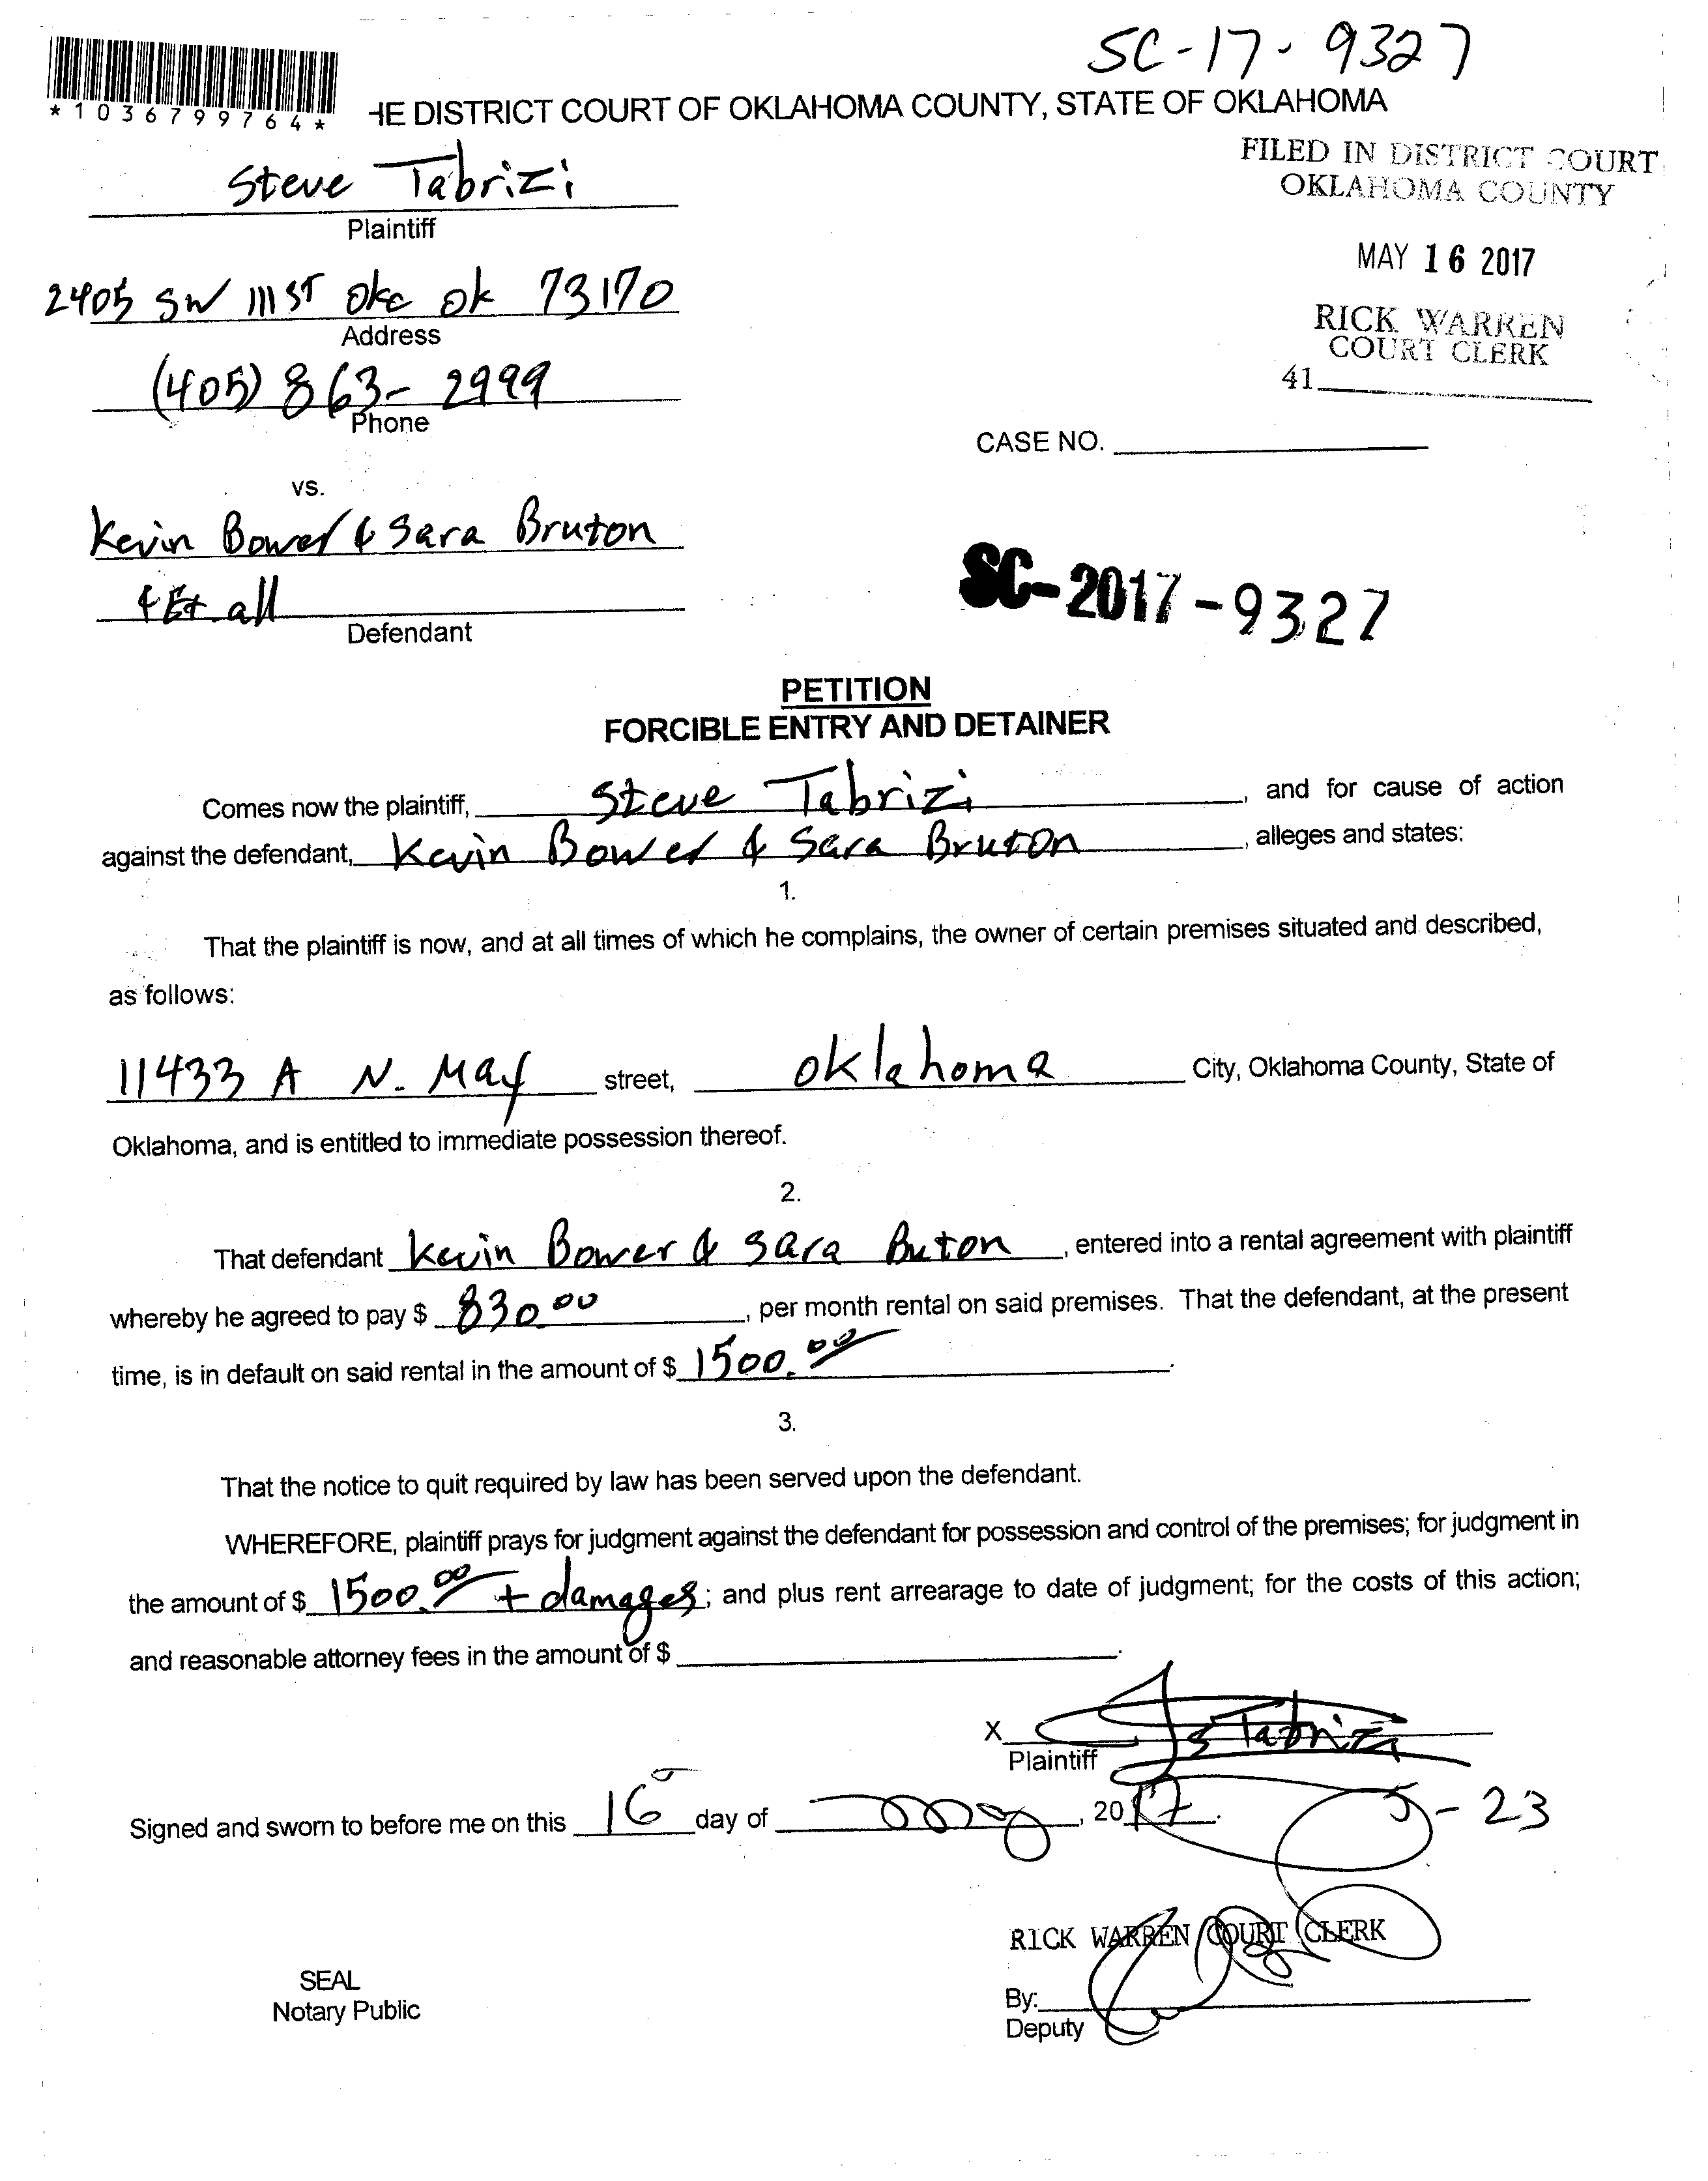 SC-17-9327
*1036799764*
HE DISTRICT COURT OF OKLAHOMA COUNTY, STATE OF OKLAHOMA
FILED IN DISTRICT COURT
OKLAHOMA COUNTY
MAY 16 2017
RICK WARREN
COURT CLERK
41
Steve Tabrizi
Plaintiff
2405 SW 111 ST okc ok 73170
Address
(405) 863-2999
Phone
CASE NO.
vs.
Kevin Bower & Sara Bruton
& Et all
Defendant
SC-2017-9327
PETITION
FORCIBLE ENTRY AND DETAINER
Comes now the plaintiff, Steve Tabrizi, and for cause of action
against the defendant, Kevin Bower & Sara Bruton, alleges and states:
1.
That the plaintiff is now, and at all times of which he complains, the owner of certain premises situated and described,
as follows:
11433 A N. May street, oklahoma City, Oklahoma County, State of
Oklahoma, and is entitled to immediate possession thereof.
2.
That defendant Kevin Bower & Sara Buton, entered into a rental agreement with plaintiff
whereby he agreed to pay $ 830.00, per month rental on said premises. That the defendant, at the present
time, is in default on said rental in the amount of $ 1500.00.
3.
That the notice to quit required by law has been served upon the defendant.
WHEREFORE, plaintiff prays for judgment against the defendant for possession and control of the premises; for judgment in
the amount of $ 1500.00 + damages; and plus rent arrearage to date of judgment; for the costs of this action;
and reasonable attorney fees in the amount of $ .
X S Tabrizi
Plaintiff
Signed and sworn to before me on this 16 day of may, 2017.
5-23
RICK WARREN COURT CLERK
SEAL
Notary Public
By:
Deputy